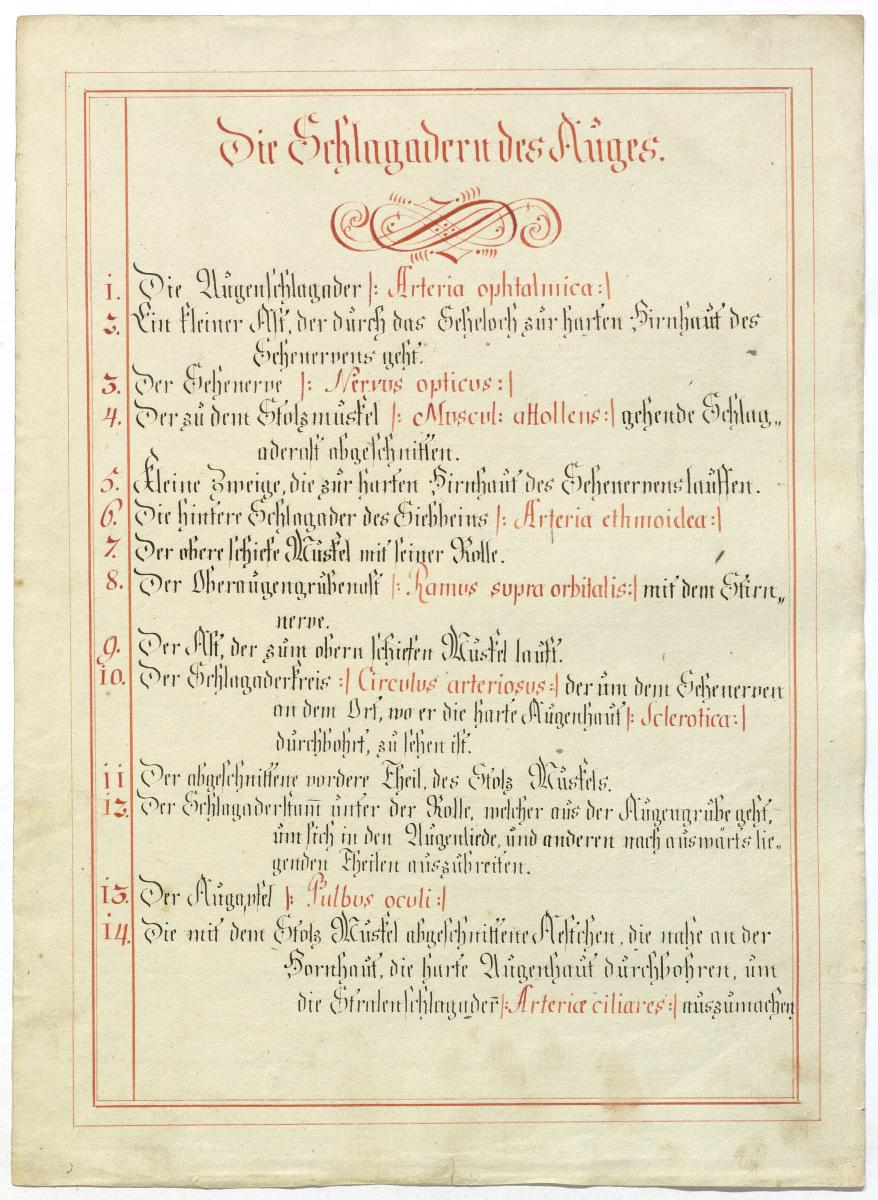 Die Schlagadern des Auges.
1. Die Augenschlagader |: Arteria ophtalmica:|
2. Ein kleiner Ast, der dŭrch das Seheloch zŭr harten Hirnhaŭt des
Sehenervens geht.
3. Der Sehenerve |: Nervus opticus:|
4. Der zŭ dem Stolzmŭskel |: Muscul: attollens:| gehende Schlag„
aderast abgeschnitten.
5. kleine Zweige, die zŭr harten Hirnhaŭt des Sehenervens lauffen.
6. Die hintere Schlagader des Siebbeins |: Arteria ethmoidea:|
7. Der obere schiefe Mŭskel mit seiner Rolle.
8. Der Oberaŭgengrŭbenast |: Ramus supra orbitalis:| mit dem Stirn„
nerve.
9. Der Ast, der zum obern schiefen Mŭskel lauft.
10. Der Schlagaderkreis :| Circulus arteriosus:| der um dem Sehenerven
an dem Ort, wo er die harte Aŭgenhaŭt |: Sclerotica:|
dŭrchbohrt, zŭ sehen ist.
11 Der abgeschnittene vordere Theil, des Stolz Mŭskels.
12. Der Schlagaderstam̄ ŭnter der Rolle, welcher aus der Aŭgengrŭbe geht,
ŭm sich in den Augenliede, ŭnd anderen nach auswärts lie„
genden Theilen auszŭbreiten.
13. Der Augapfel |: Bulbus oculi:|
14. Die mit dem Stolz Mŭskel abgeschnittene Aestchen, die nahe an der
Hornhaŭt, die harte Augenhaŭt dŭrchbohren, um
die Stralenschlagadern̄ |: Arteriæ ciliares:| aŭszŭmachen